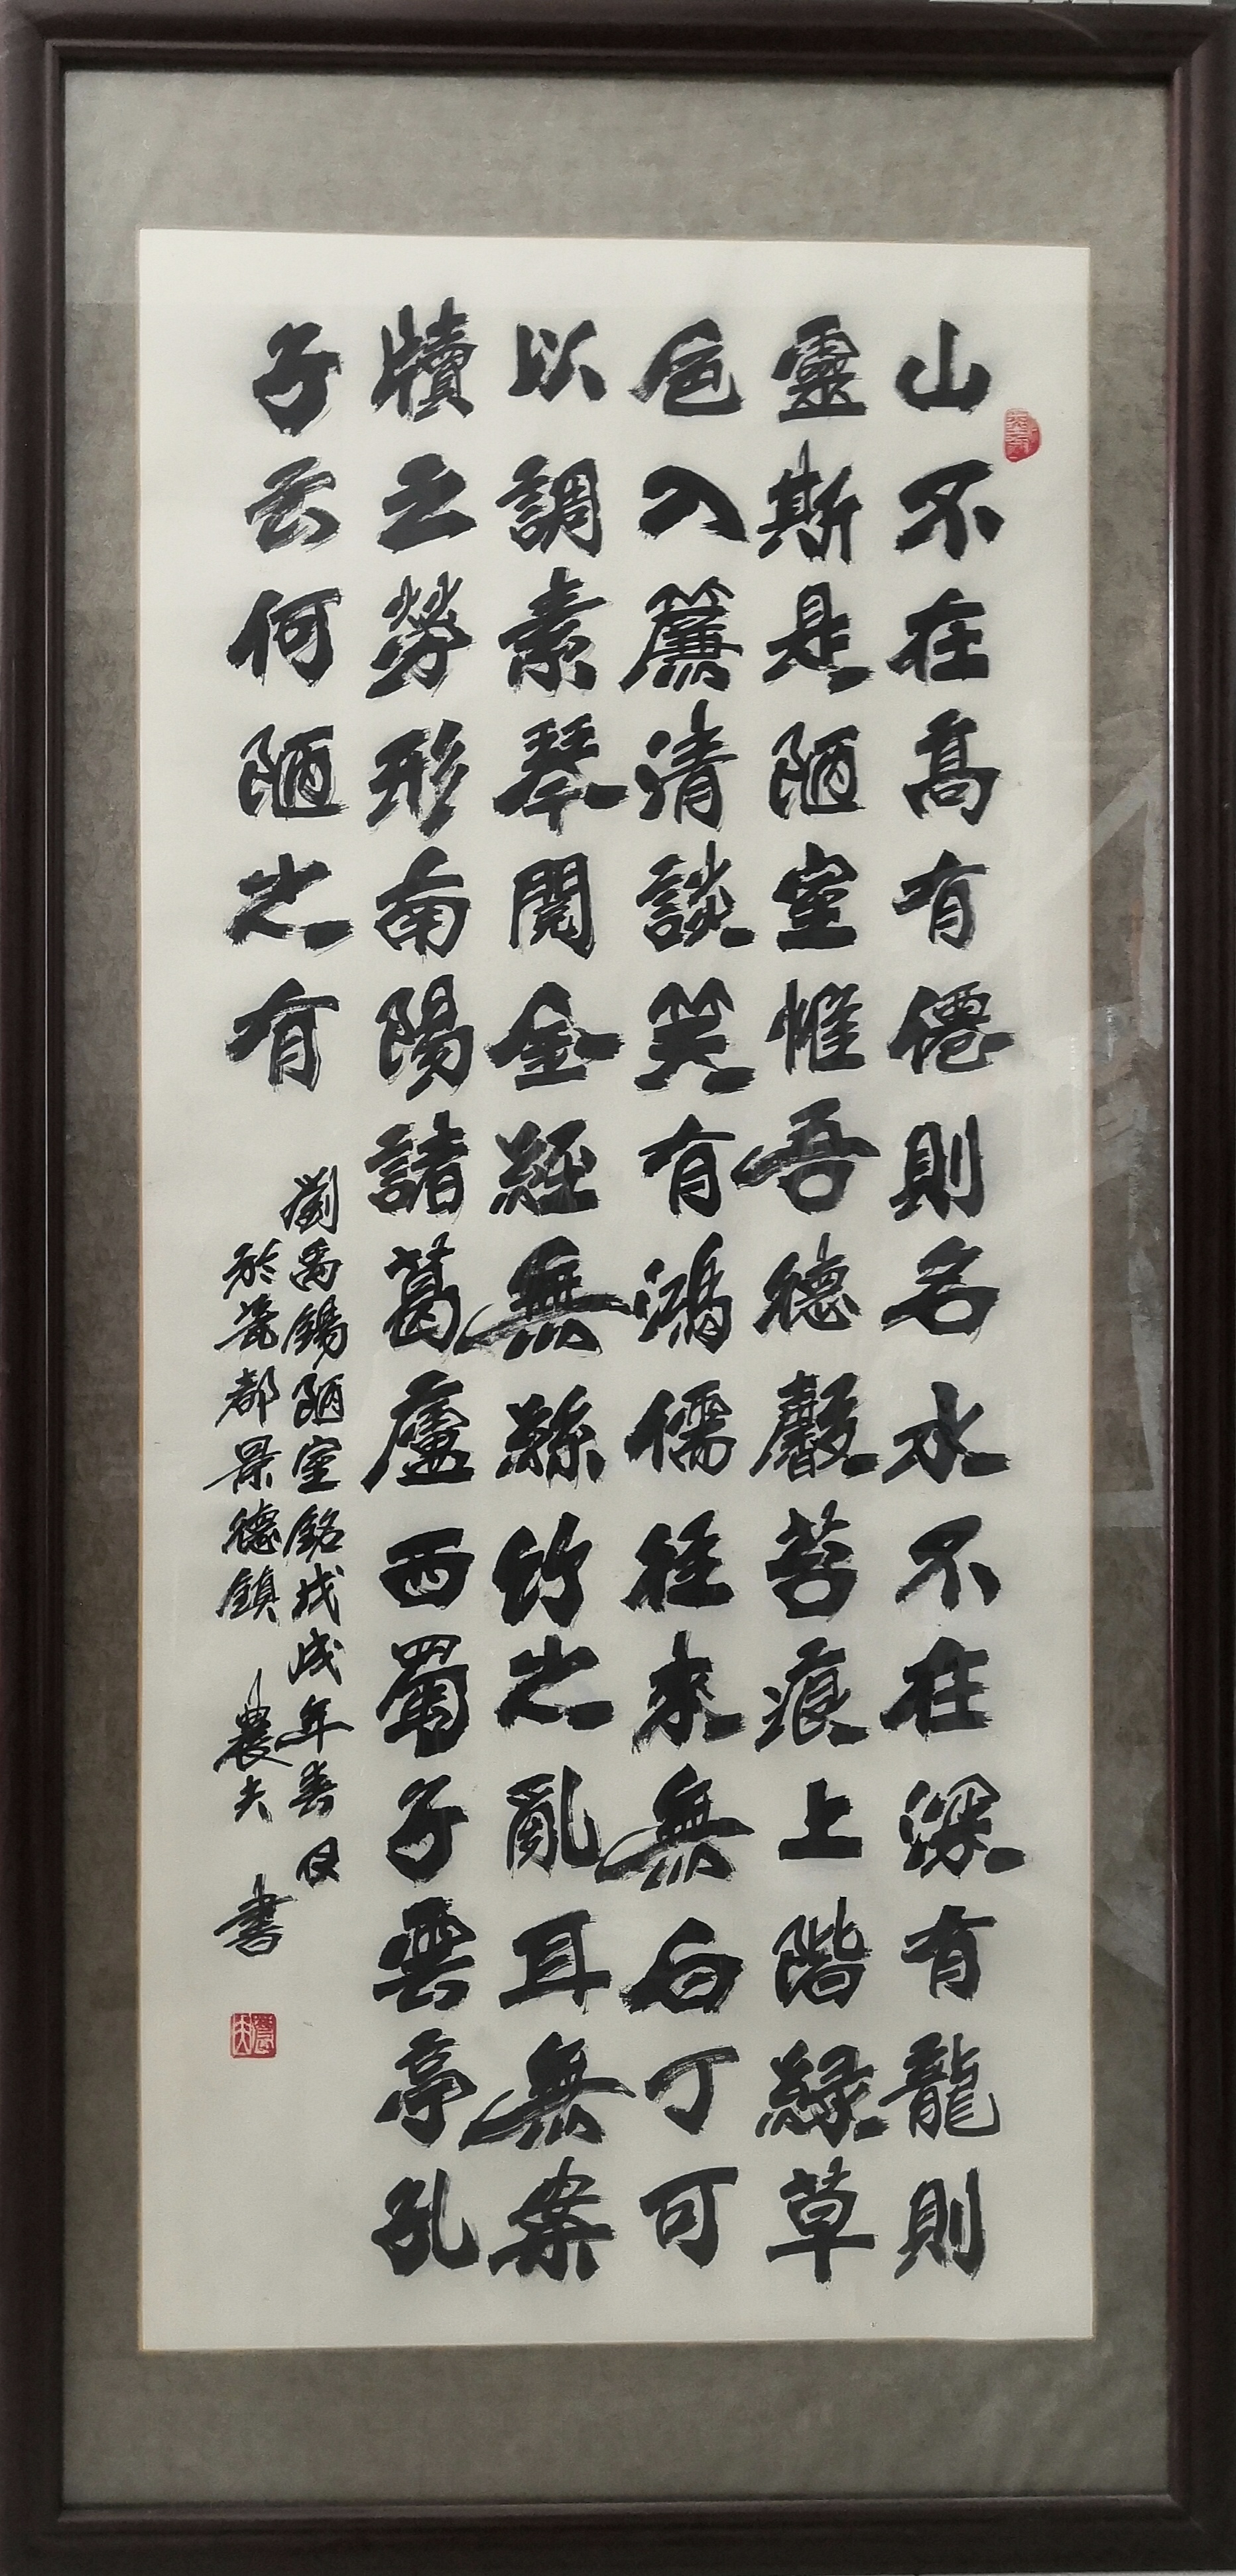 山不在高有僊則名水不在深有龍則
靈斯是陋室惟吾德馨苔痕上階緑草
色入簾清談笑有鴻儒往來無白丁可
以調素琴閱金經無絲竹之亂耳無案
牘之勞形南陽諸葛廬西蜀子雲亭孔
子云何陋之有
劉禹錫陋室銘戊戌年春日
於瓷都景德鎮 農夫 書
農夫